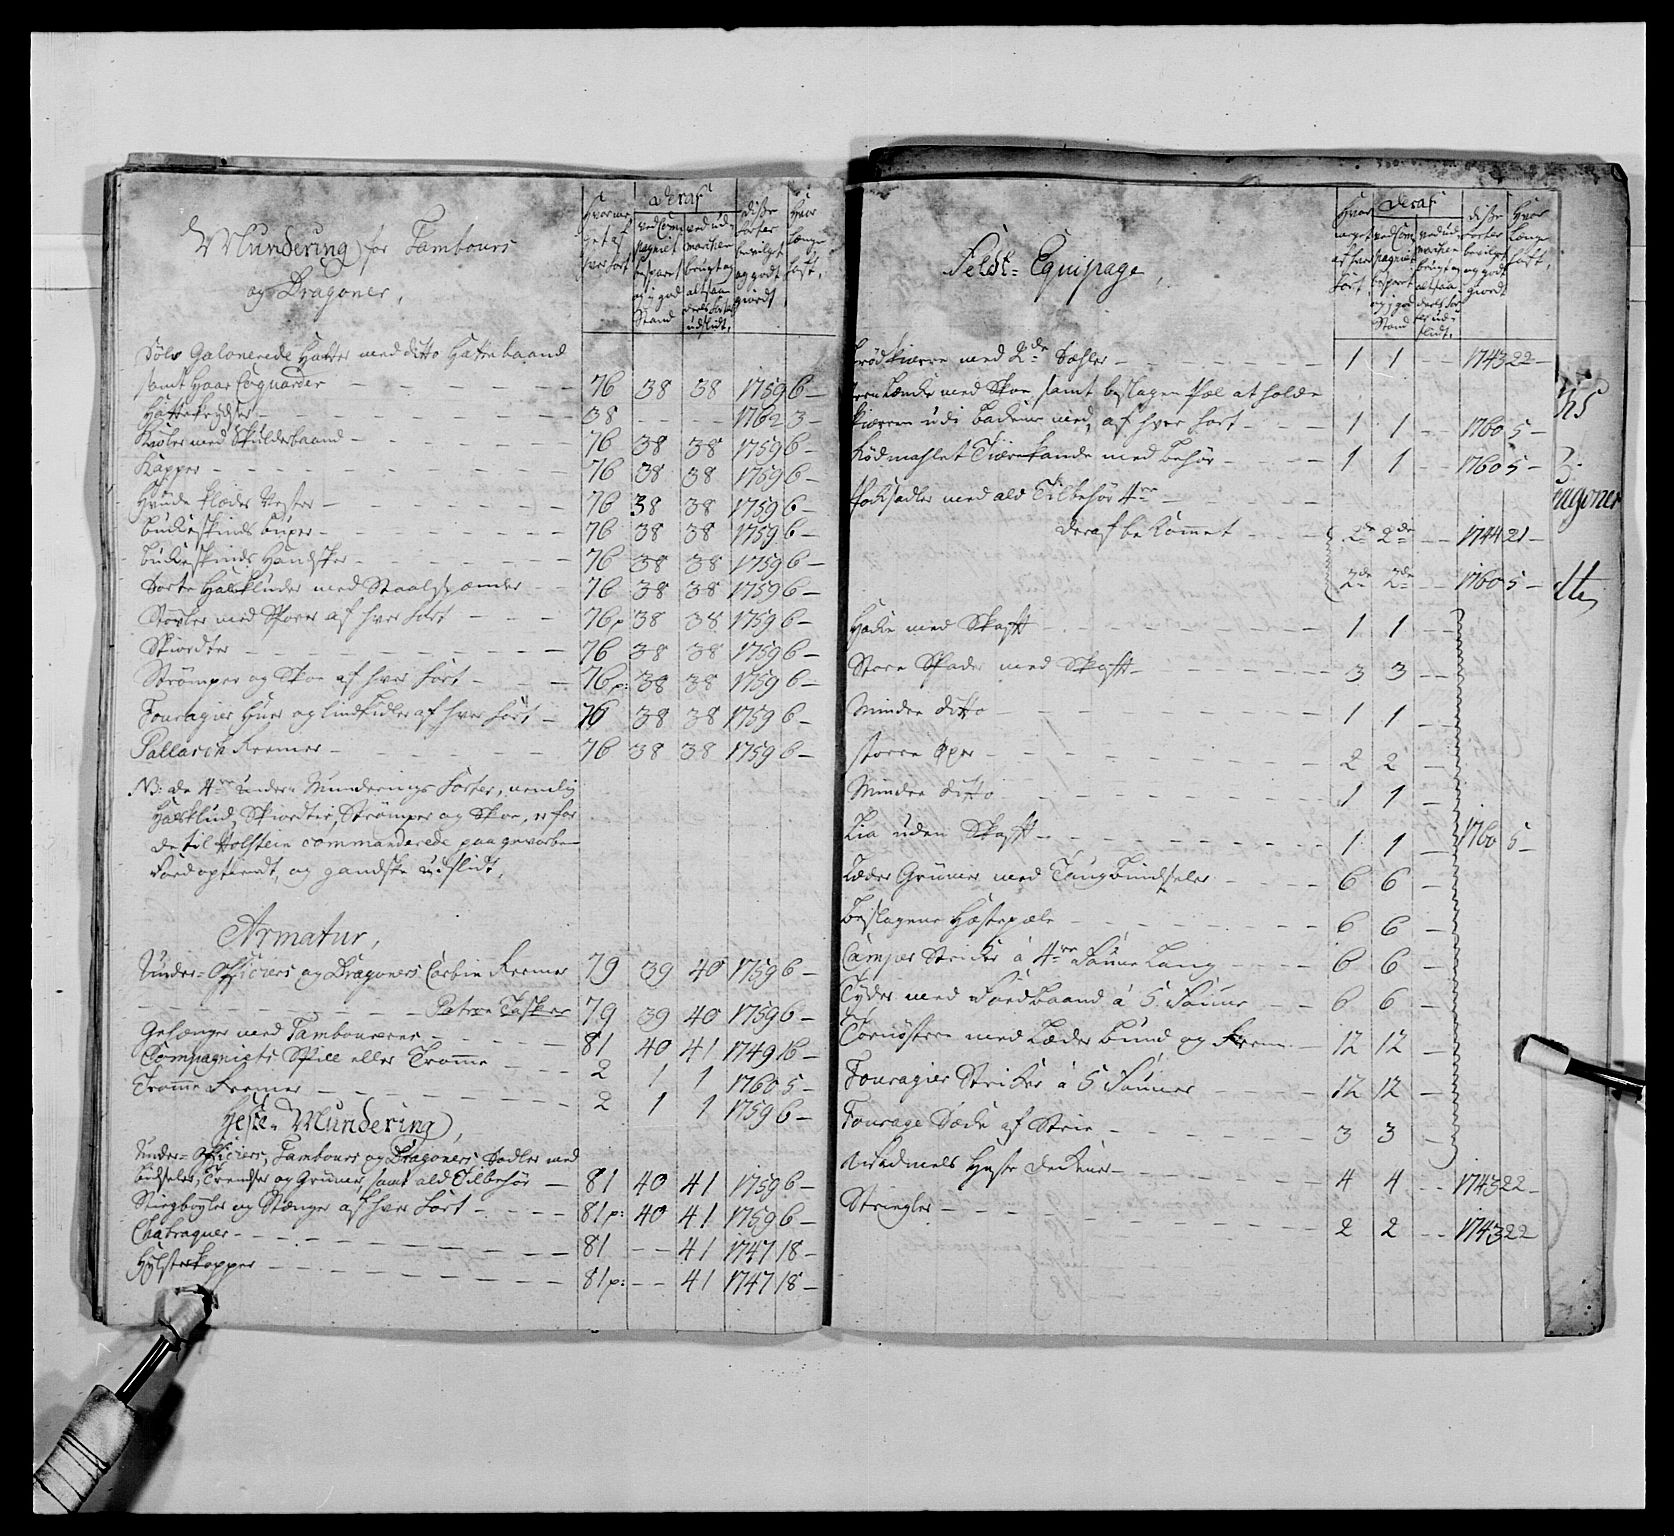 Mundering for Tambours
og Dragoner,
Hvormeget af hver sort
deraf
ved Compagniet bespart og i god Stand
ved udmarchen brugt og altsaa deels fortæret udslidt,
disse sorter bevilget og godtgiordt
Hvor længe haft,
Sølv Galonerede Hatter med ditto Hattebaand
samt Haar 76 38 38 1759 6 —
Hatte 38 — — 1762 3 —
Kioler med Skulderbaand — 76 38 38 1759 6 —
Kapper — 76 38 38 1759 6 —
Hvide Klædes Vester — 76 38 38 1759 6 —
Buckeskinds Buxer — 76 38 38 1759 6 —
Buckeskinds Handsker — 76 38 38 1759 6 —
Sorte Halskluder med Staalspænder — 76 38 38 1759 6 —
Støvler med Sporer af hver sort — 76 p: 38 38 1759 6 —
Skiordter — 76 38 38 1759 6 —
Strømper og Skoe af hver sort — 76 p: 38 38 1759 6 —
Fouragier Huer og Lindkidler af hver sort — 76 38 38 1759 6 —
Pallasch Remer — 76 38 38 1759 6 —
NB: de 4re Munderings Sorter, nemlig
Halsklud, Skiordter, Strømper og Skoe, er for
de til Holstein commanderede paa
og gandske udslidt,
Armatur,
Under-Officiers og Dragoners Carbin Remer 79 39 40 1759 6 —
Patron Tasker 79 39 40 1759 6 —
Gehænger med Tambourerer 81 40 41 1749 16 —
Compagniets Spill eller Tromme — 2 1 1 1760 5 —
Tromme Remer — 2 1 1 1759 6 —
Heste-Mundering,
Under-Officiers, Tambours og Dragoners Sadler med
Bidseler, Trendser og Grimer, samt ald Tilbehør — 81 40 41 1759 6 —
Stiegbøyler og Stænger af hver sort — 81 p: 40 41 1759 6 —
Chabraquer — 81 — — 41 1747 18 —
Hylsterkapper — 81 p: — — 41 1747 18 —
Feldt-Equipage,
Hvor meget af hver sort,
deraf
ved Compagniet bespart og i god Stand
disse sorter bevilget og godtgiordt
Hvor længe haft,
Brødkierre med 2de Sæhler — 1 1 — 1743 22 —
med Skoe, samt beslagen Pæl at holde
Kierren udi Backerne med, af hver sort — 1 1 — 1760 5 —
Rødmahlet Tiærekande med behør — 1 1 — 1760 5 —
Packsadler med ald Tilbehør 4re —
deraf bekommet — 2de 2de — 1744 21 —
2de 2de — 1760 5 —
Hacke med Skafft — 1 1 —
Store Spader med Skafft — 3 3 —
Mindre ditto — 1 1 —
Større Øxer — 2 2 —
Mindre ditto — 1 1 —
Lia uden Skafft — 1 1 — 1760 5 —
Læder Grimer med Tougbindseler — 6 6 —
Beslagene Hæstepæle — 6 6 —
Campe Stricker à 4re Faune Lang — 6 6 —
Tyder med Jordbaand à 5 Faune — 6 6 —
Tornøstre med Læder Bund og Reem — 12 12 —
Fouragier Stricker à 5 Fauner — 12 12 —
Fourage Sæcke af Strie — 3 3 —
Wadmels Heste Deckener — 4 4 — 1743 22 —
Striegler — 2 2 — 1743 22